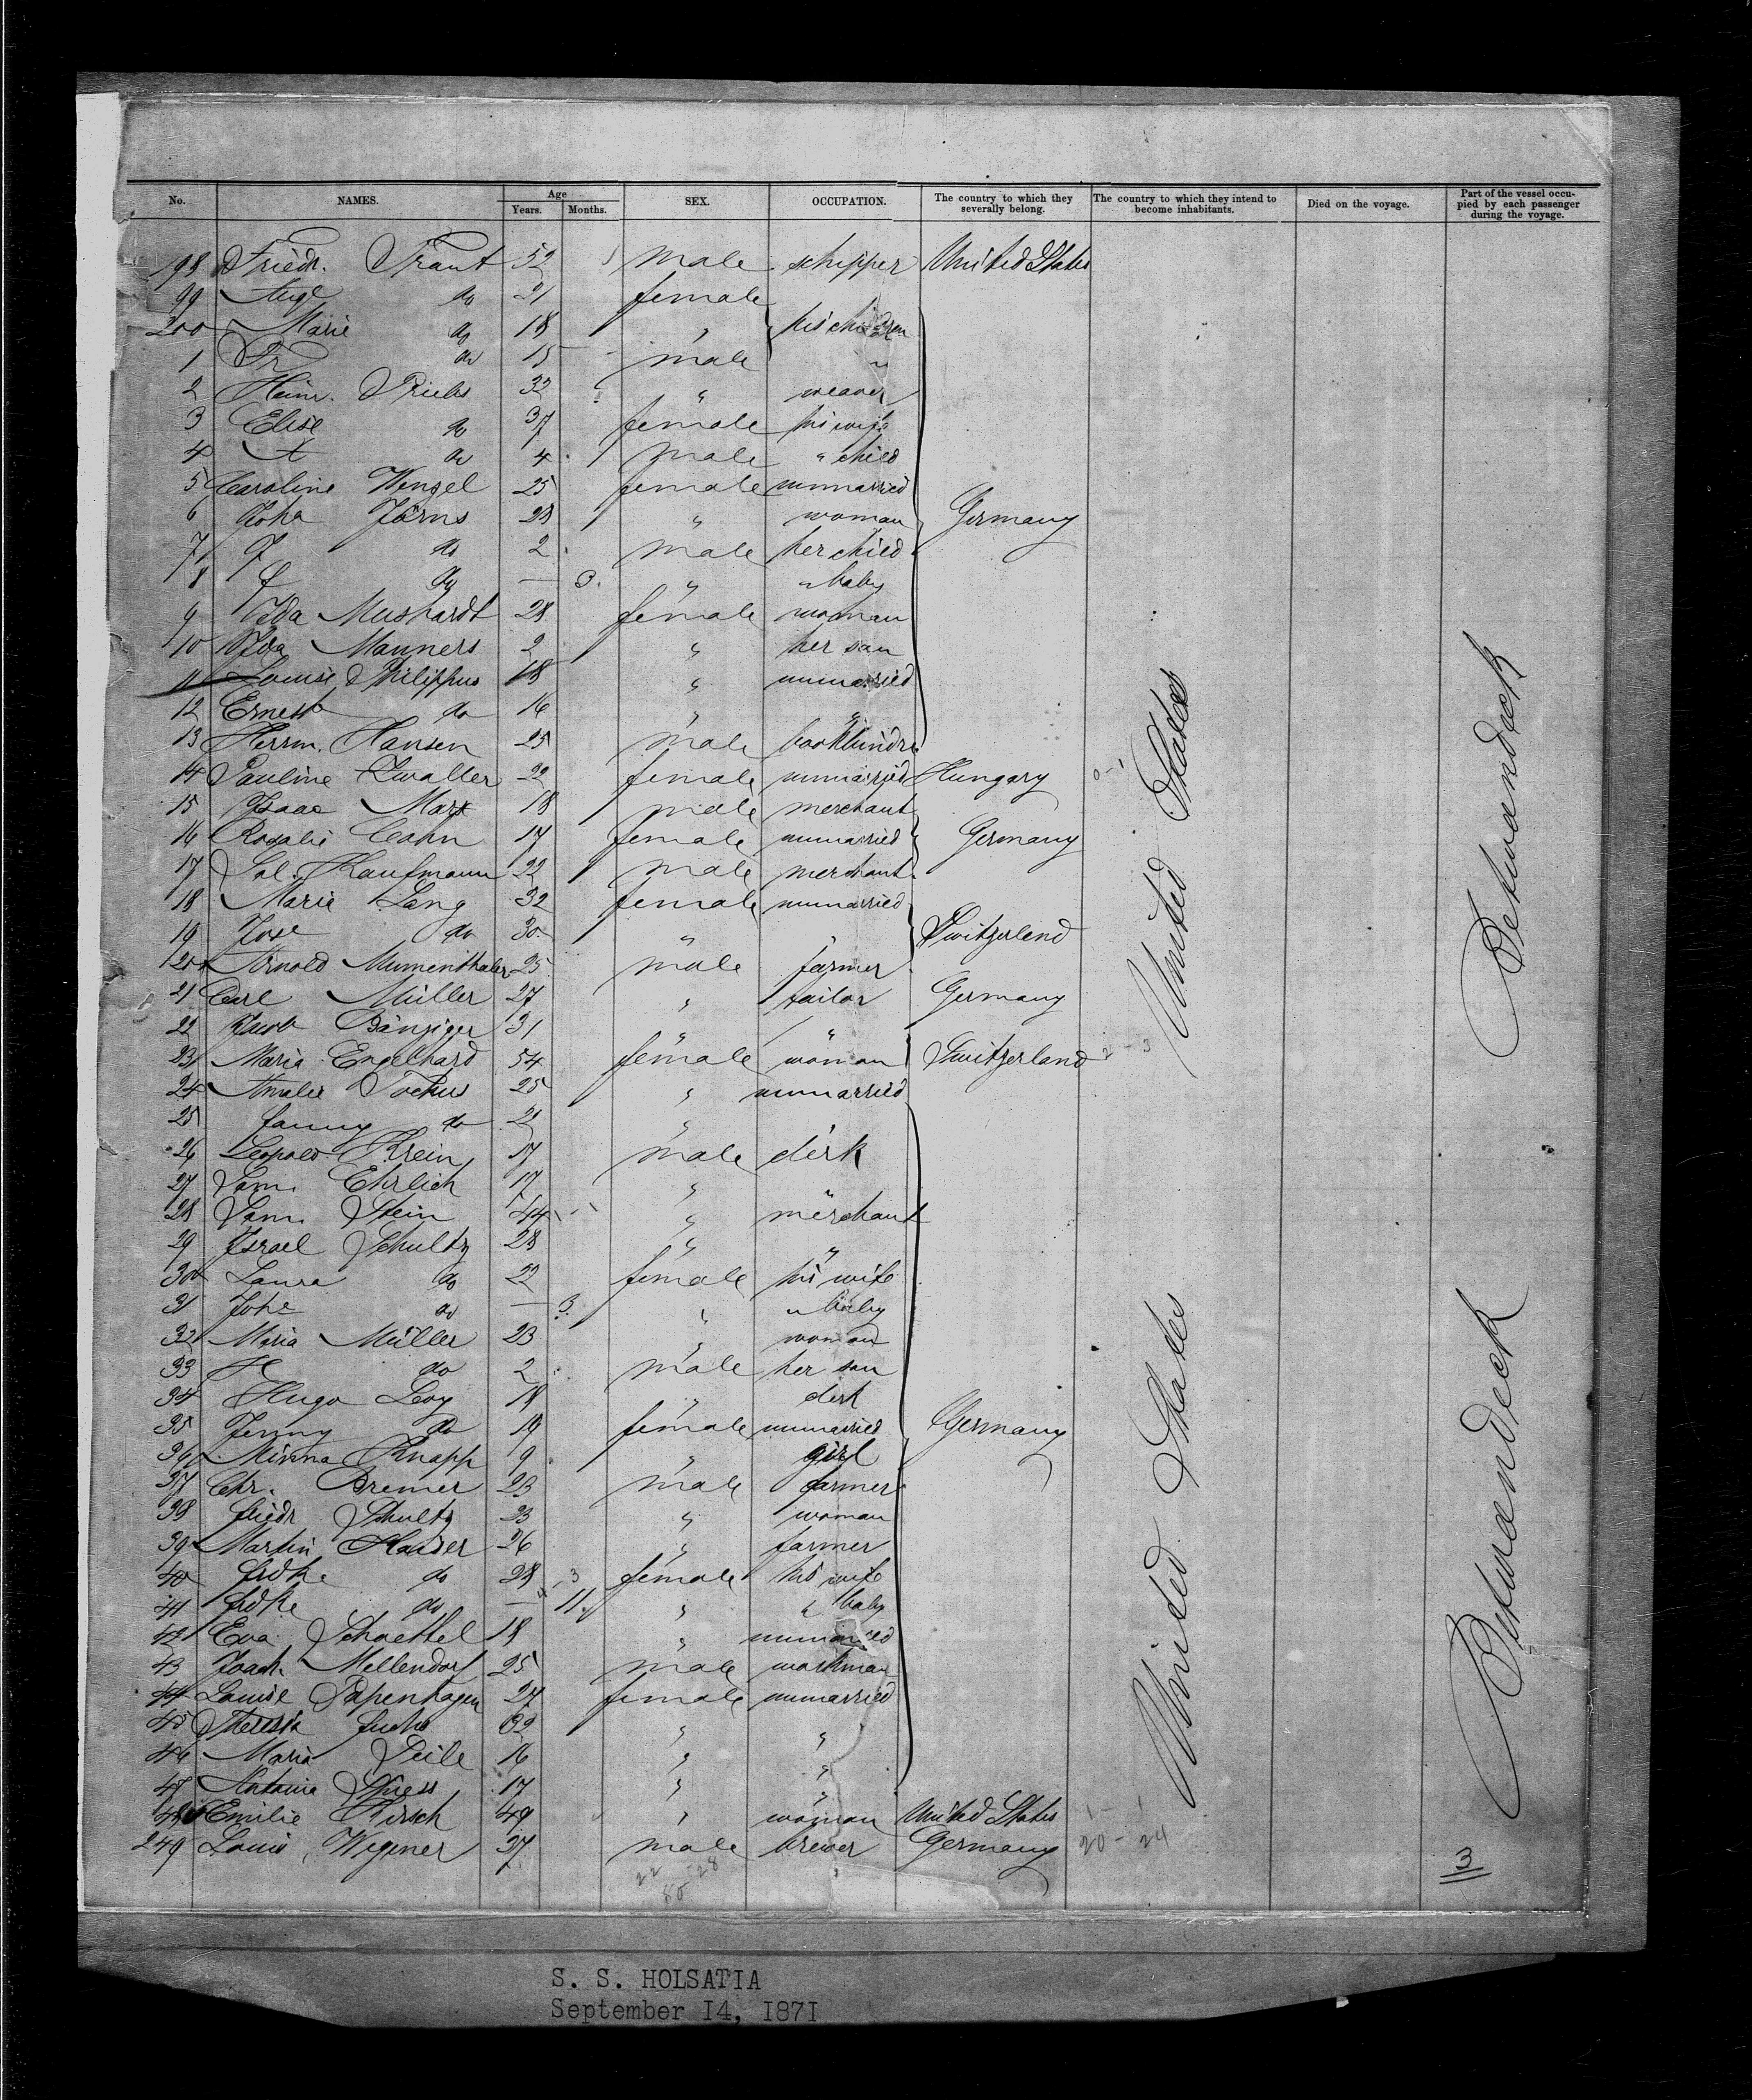 No. NAMES. Age Years. Months. SEX. OCCUPATION. The country to which they severally belong. The country to which they intend to become inhabitants. Died on the voyage. Part of the vessel occupied by each passenger during the voyage.
198 Friedr. Traut 52 male schipper United States
99 Aug do 21 female
200 Marie do 18 " his children
1 Fr do 15 male "
2 Heinr. 32 " weaver
3 Elise do 37 female his wife
4 A do 4 male " child
5 Caroline Wenzel 25 female unmarried
6 Joha Jörns 28 " woman Germany
7 J do 2 male her child
8 do — 3. " " baby
9 Ida Mushardt 28 female woman
10 Ida Manners 2 " her son
11 Louise Philippus 18 " unmarried
12 Ernest do 16 " "
13 Herrm. Hansen 25 male bookbinder
14 Pauline 22 female unmarried Hungary
15 Isaac Marx 18 male merchant
16 Rosalie Cohn 17 female unmarried Germany
17 Sal. Kaufmann 22 male merchant
18 Marie Lang 32 female unmarried
19 Jose do 30 " " Switzerland
20 Arnold Mumenthaler 25 male farmer
21 Carl Müller 27 " tailor Germany
22 Jacob Bänziger 31 " "
23 Maria Engelhard 54 female woman Switzerland
24 Amalie Tockus 25 " unmarried
25 fanny do 21 "
26 Leopold Krein 17 male clerk
27 Sam. Ehrlich 17 " "
28 Sam. Stein 44 " merchant
29 Israel Schultz 28 " "
30 Laura do 22 female his wife
31 Johe do — 3. " " baby
32 Maria Müller 23 " woman
33 H do 2 male her son
34 Hugo Levy 18 " clerk
35 Jenny do 19 female unmarried Germany
36 Minna Knapp 9 " girl
37 Chr. Bremer 23 male farmer
38 friedr Schultz 23 " woman
39 Martin Hauser 26 " farmer
40 do 28 female his wife
41 do — 11. " " baby
42 Eva Schaettel 18 " unmarried
43 Joach. Mellendorf 25 male workman
44 Louise Papenhagen 27 female unmarried
45 Theresia fuchs 62 " "
46 Maria Peile 16 " "
47 Antonie 17 " "
48 Emilie Hirsch 49 " woman United States
249 Louis Wegener 37 male brewer Germany 20 - 24
United States
United States
Betweendeck
Betweendeck
3
S. S. HOLSATIA
September I4, I87I